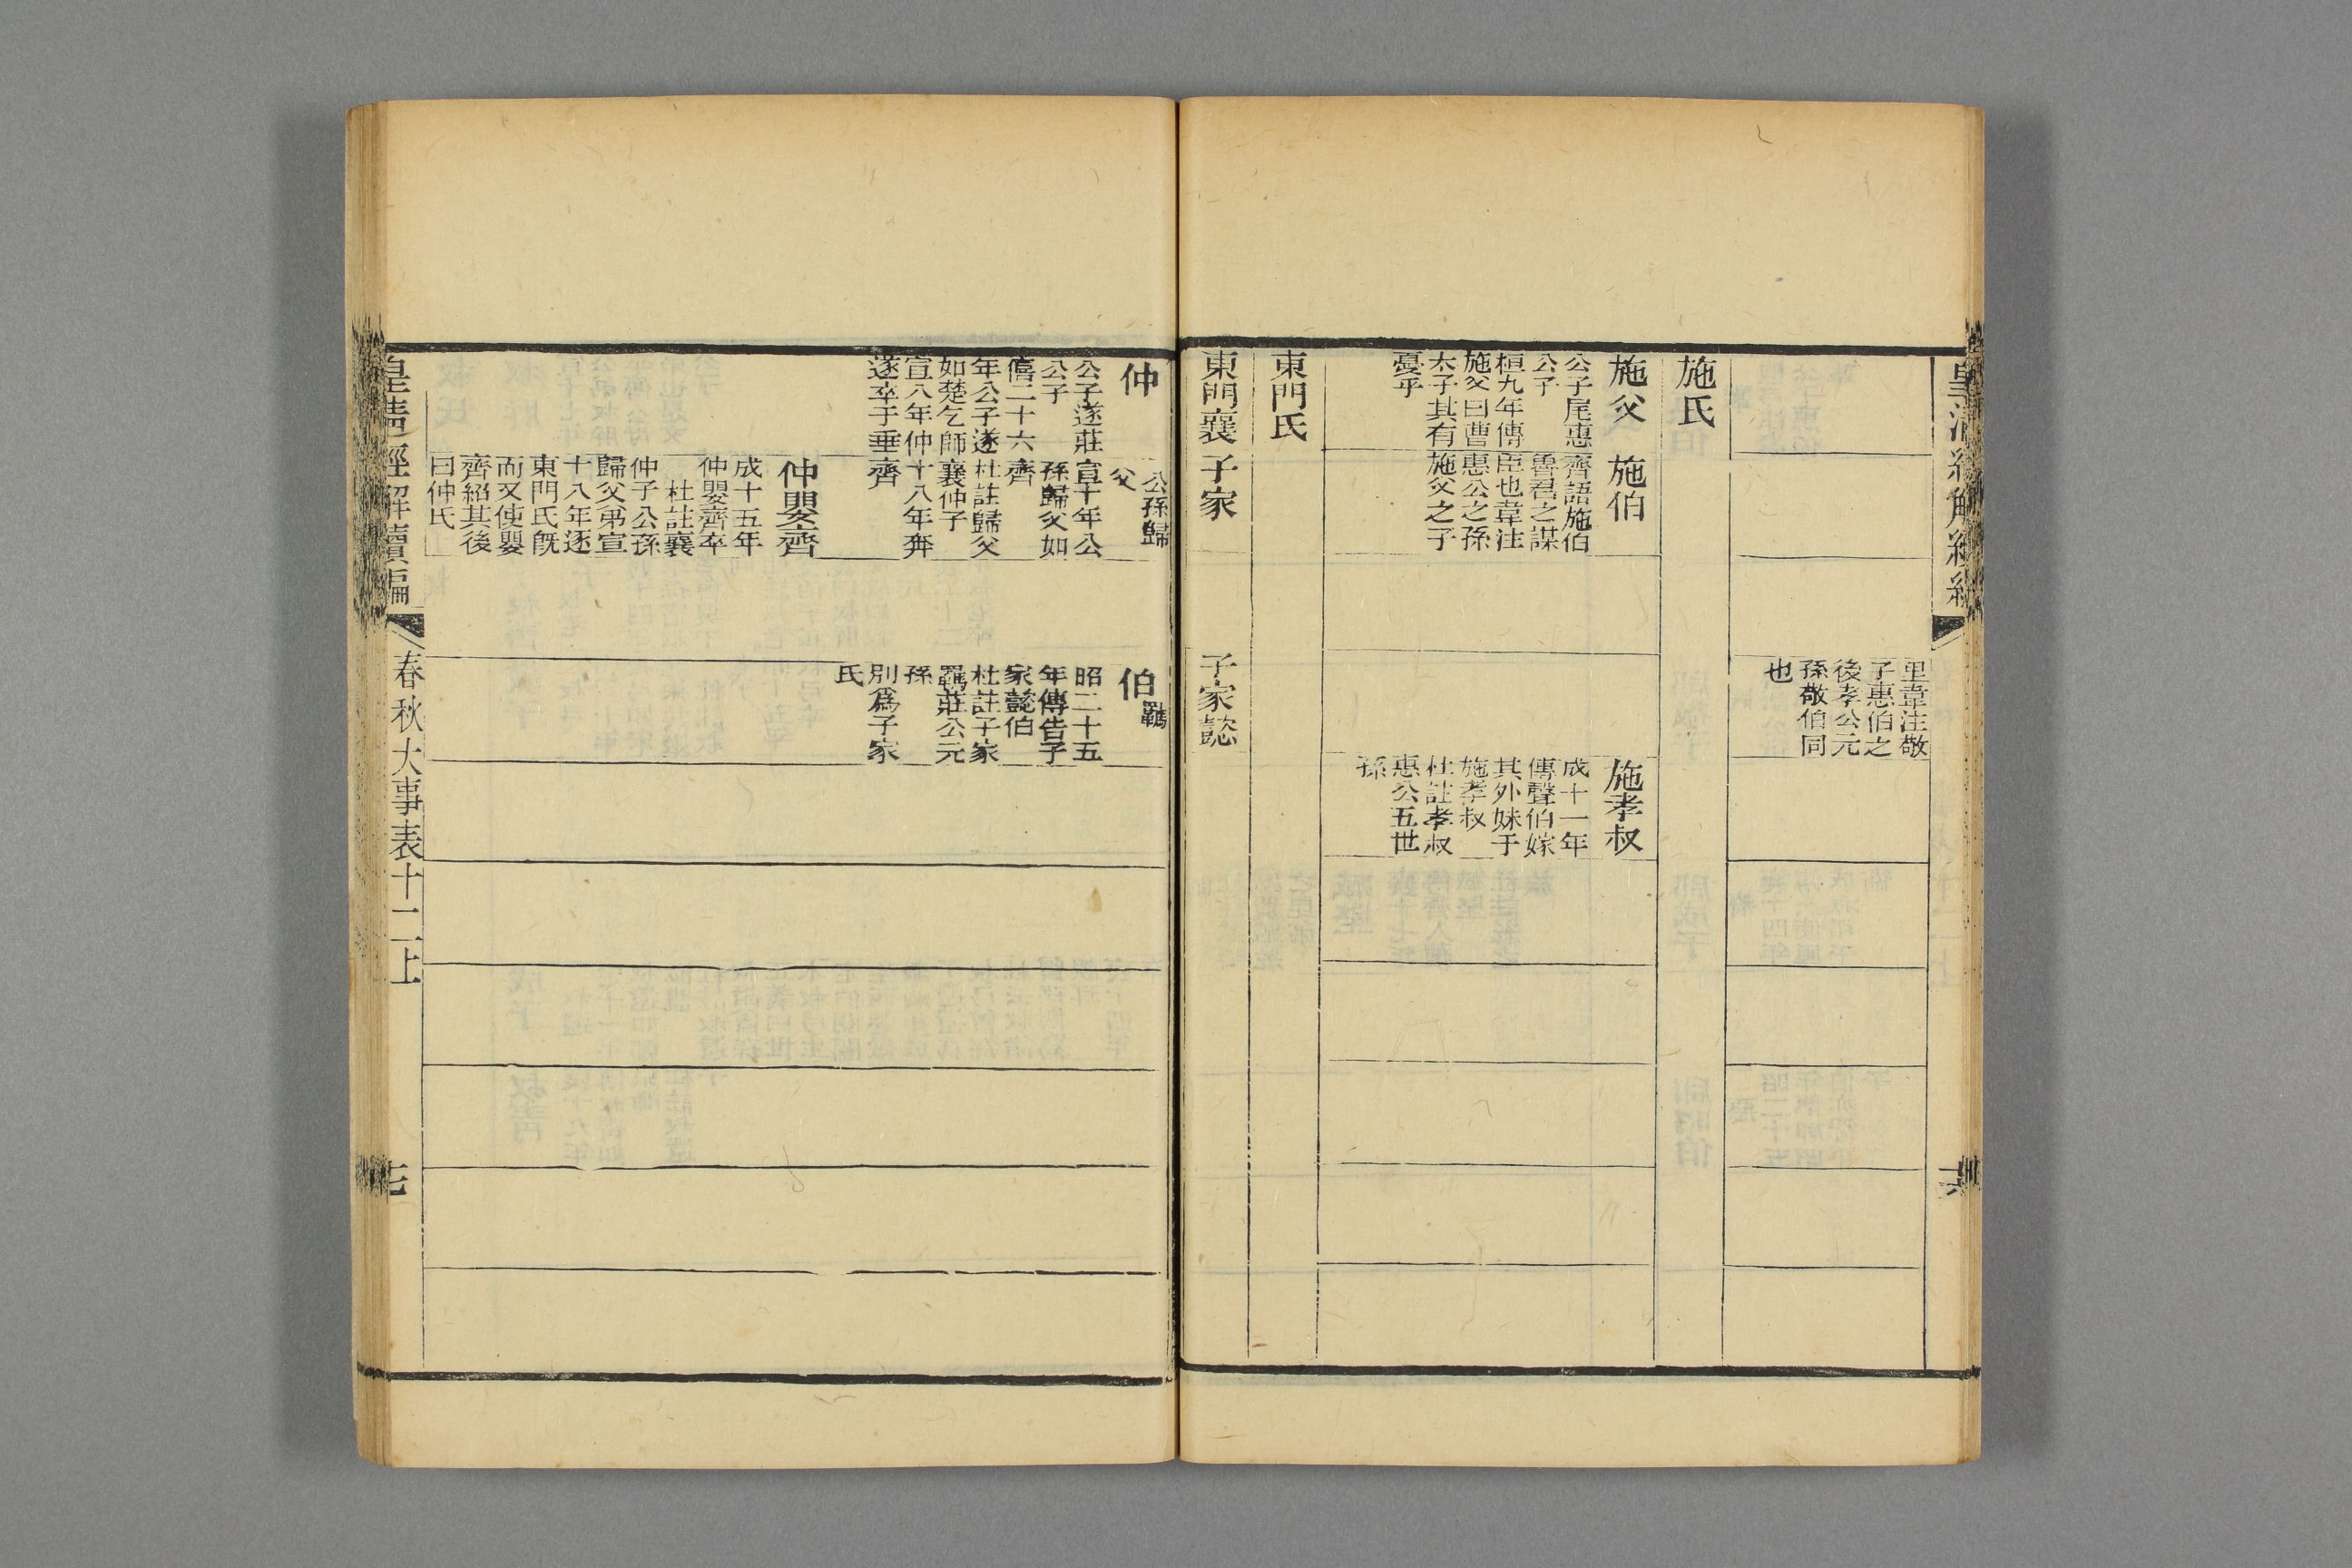 皇清經解續編
里韋注敬
子惠伯之
後孝公元
孫敬伯同
也
施氏
施父
公子尾惠
公子
桓九年傳
施父曰曹
太子其有
憂乎
施伯
齊語施伯
魯君之謀
臣也韋注
惠公之孫
施父之子
施孝叔
成十一年
傳聲伯嫁
其外妹于
施孝叔
杜註孝叔
惠公五世
孫
東門氏
東門襄
仲
公子遂莊
公子
僖二十六
年公子遂
如楚乞師
宣八年仲
遂卒于垂
子家
公孫歸
父
宣十年公
孫歸父如
齊
杜註歸父
襄仲子
十八年奔
齊
仲嬰齊
成十五年
仲嬰齊卒
杜註襄
仲子公孫
歸父弟宣
十八年逐
東門氏既
而又使嬰
齊紹其後
曰仲氏
子家懿
伯羈
昭二十五
年傳告子
家懿伯
杜註子家
羈莊公元
孫
別爲子家
氏
皇清經解續編
春秋大事表十二上
七